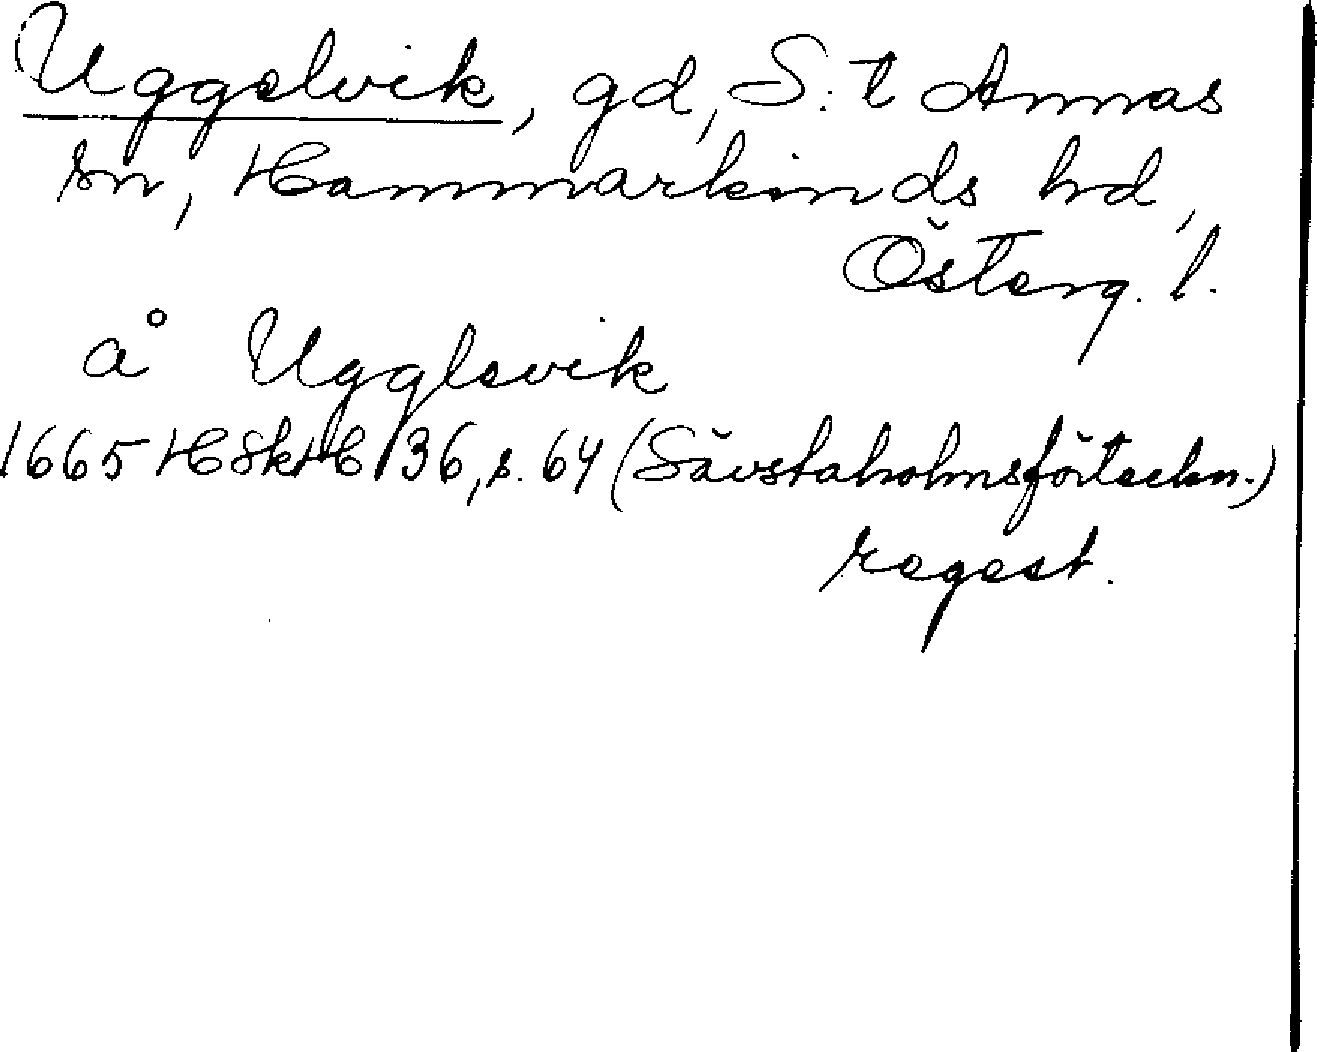 Uggelvik, gd, S:t Annas
sn, Hammarkinds hd,
Österg. l.
å Ugglevik
1665 HSkH 136, s. 64 (Sävstaholmsförteckn.)
regest.